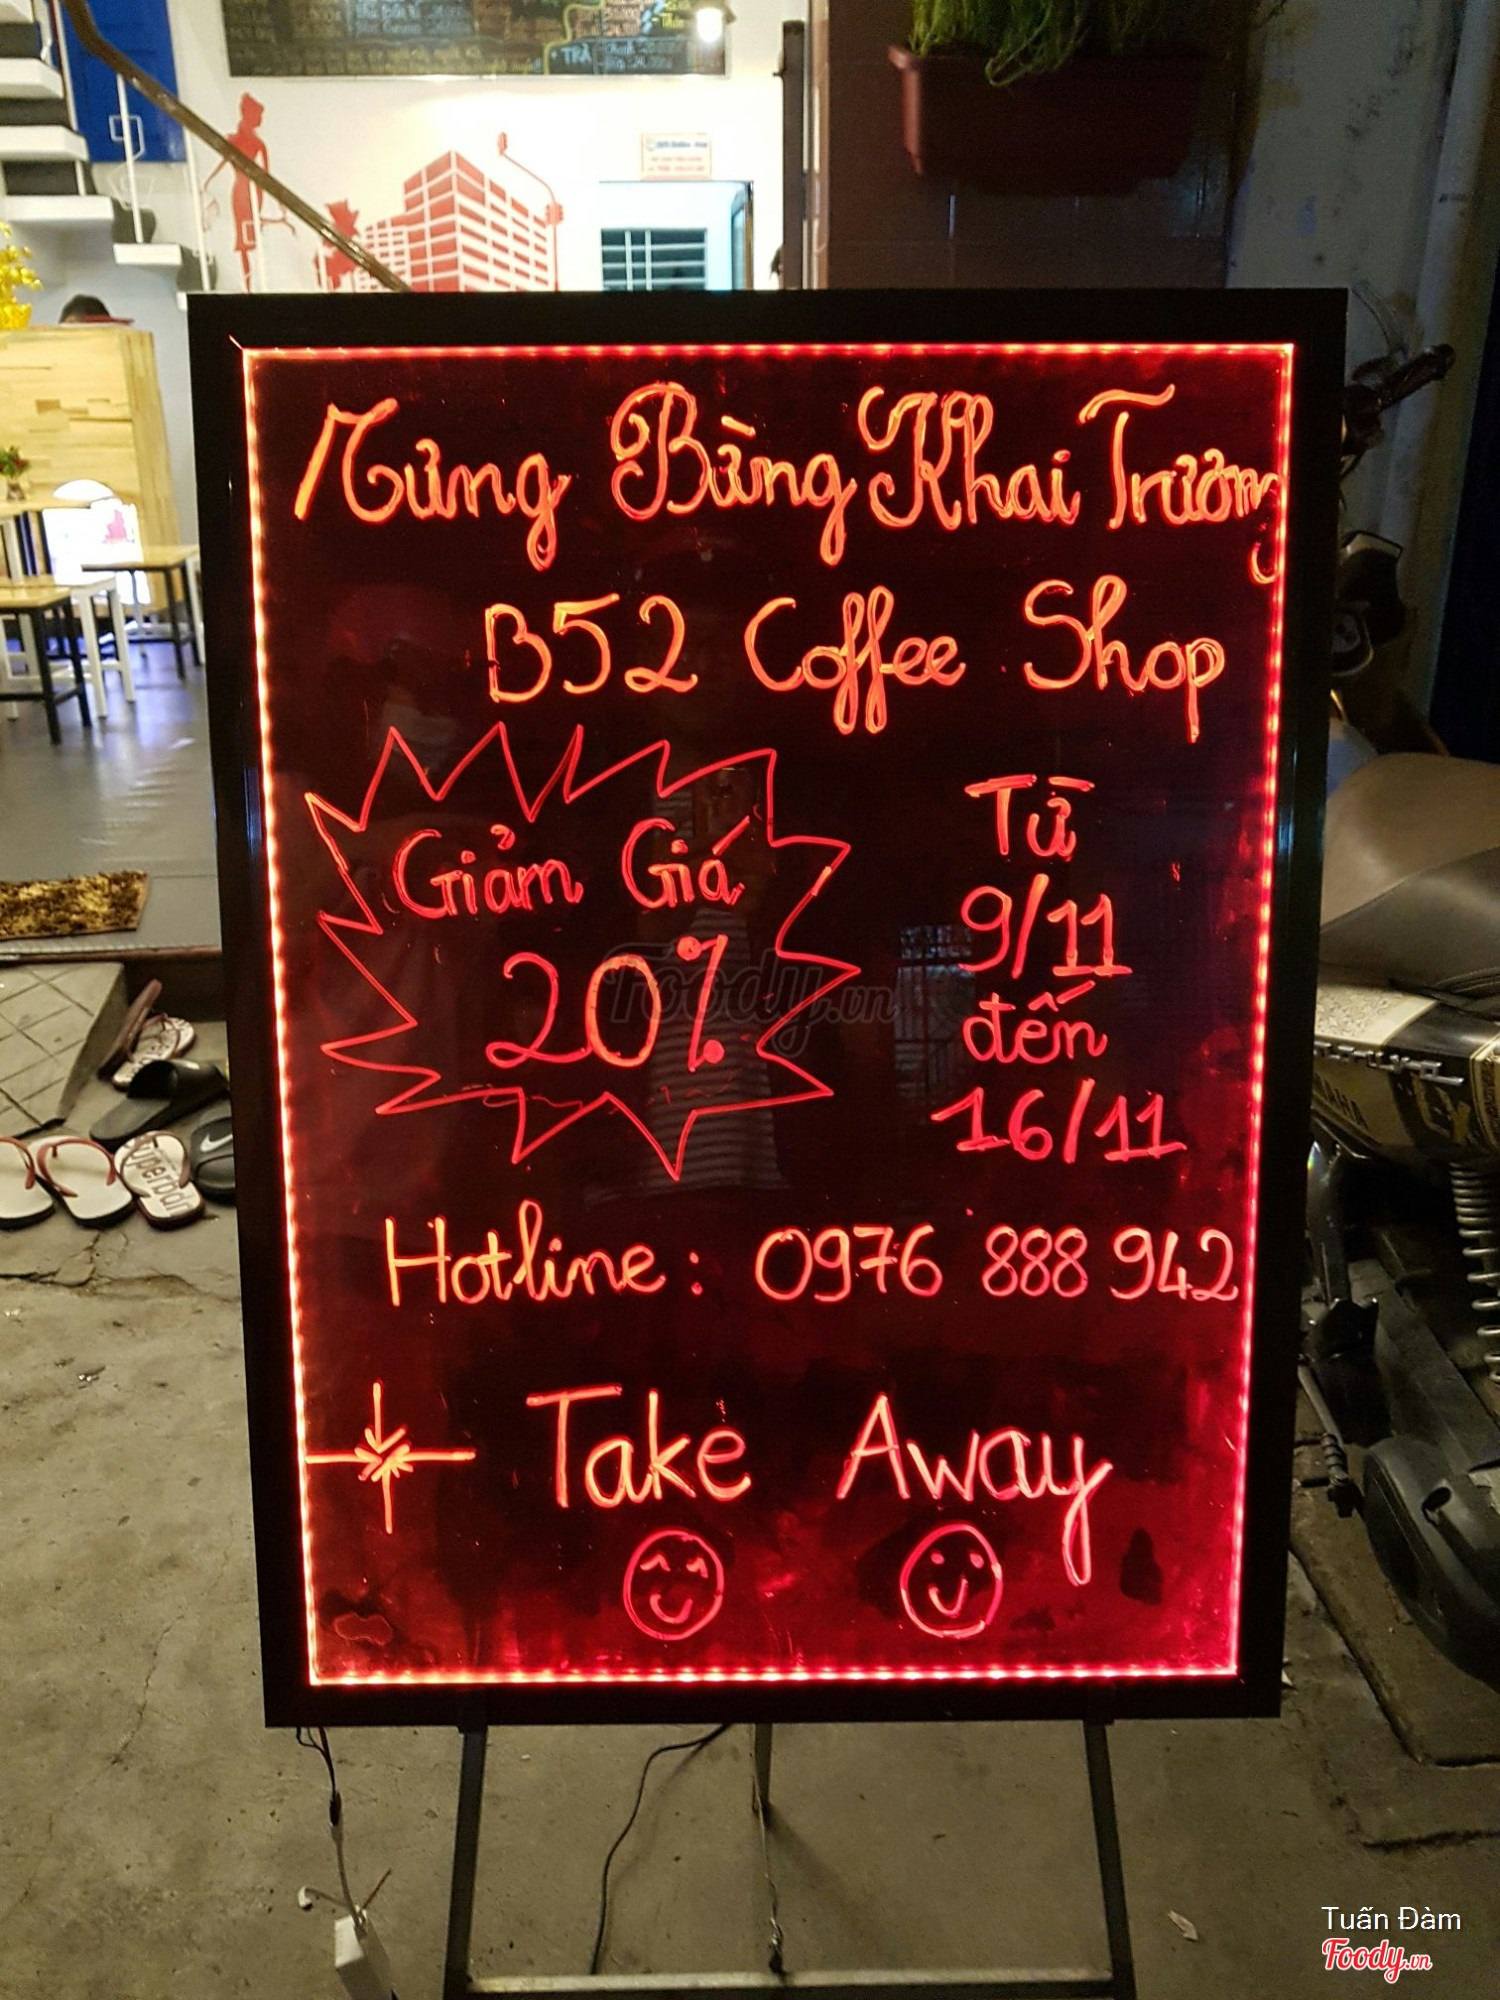 Tưng Bừng Khai Trương
B52 Coffee Shop
Giảm Giá
20%
Từ
9/11
đến
16/11
Hotline: 0976 888 942
Take Away
Foody.vn
Superbdr
YAMAHA
Tuấn Đàm
Foody.vn